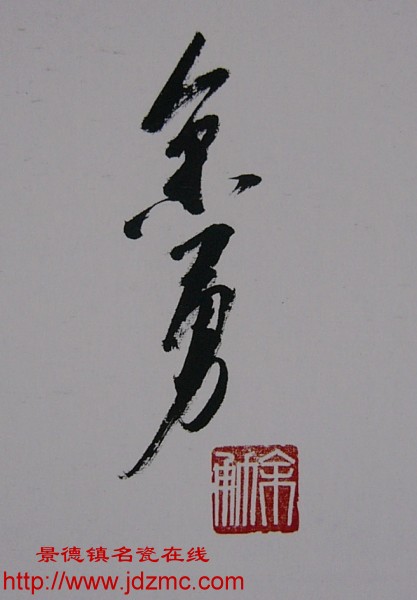 余勇
余勇
景德镇名瓷在线
http://www.jdzmc.com